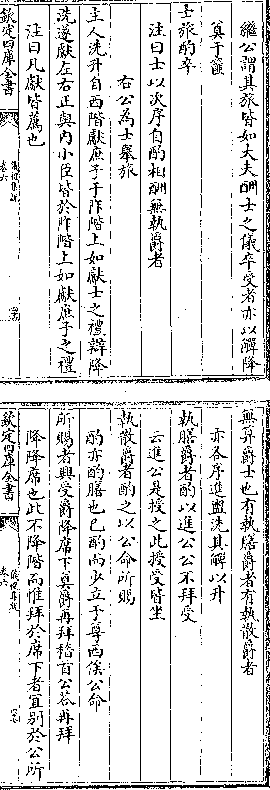 繼公謂其旅皆如大夫酬士之儀卒受者亦以觶降
奠于篚
士旅酌卒
注曰士以次序自酌相酬無執爵者
右公為士舉旅
主人洗升自西階獻庶子于阼階上如獻士之禮辯降
洗遂獻左右正與内小臣皆於阼階上如獻庶子之禮
注曰凡獻皆薦也
欽定四庫全書
無算爵士也有執膳爵者有執散爵者
亦各序進盥洗其觶以升
執膳爵者酌以進公公不拜受
云進公是授之此授受皆坐
執散爵者酌之以公命所賜
酌亦酌膳也已酌而少立于尊西俟公命
所賜者興受爵降席下奠爵再拜稽首公荅再拜
降降席也此不降階而惟拜於席下者宜别於公所
欽定四庫全書